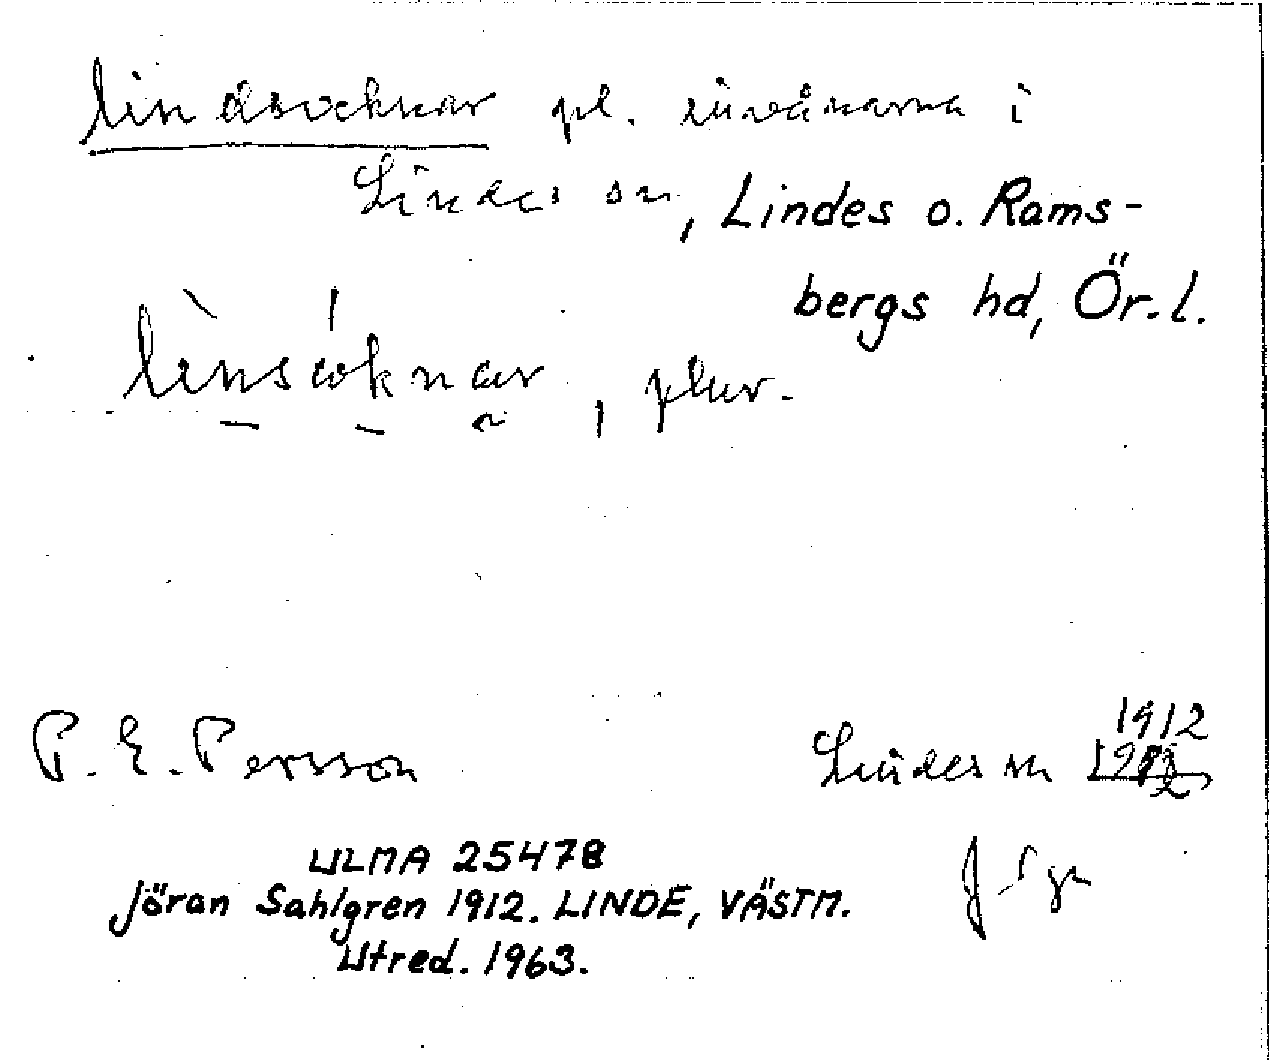 lindsocknar pl. invånarna i
Lindes sn, Lindes o. Rams-
bergs hd, Ör. l.
linsöknar, plur.
P. E. Persson
Lindes sn 1912
ULMA 25478
Jöran Sahlgren 1912. LINDE, VÄSTM.
Utred. 1963.